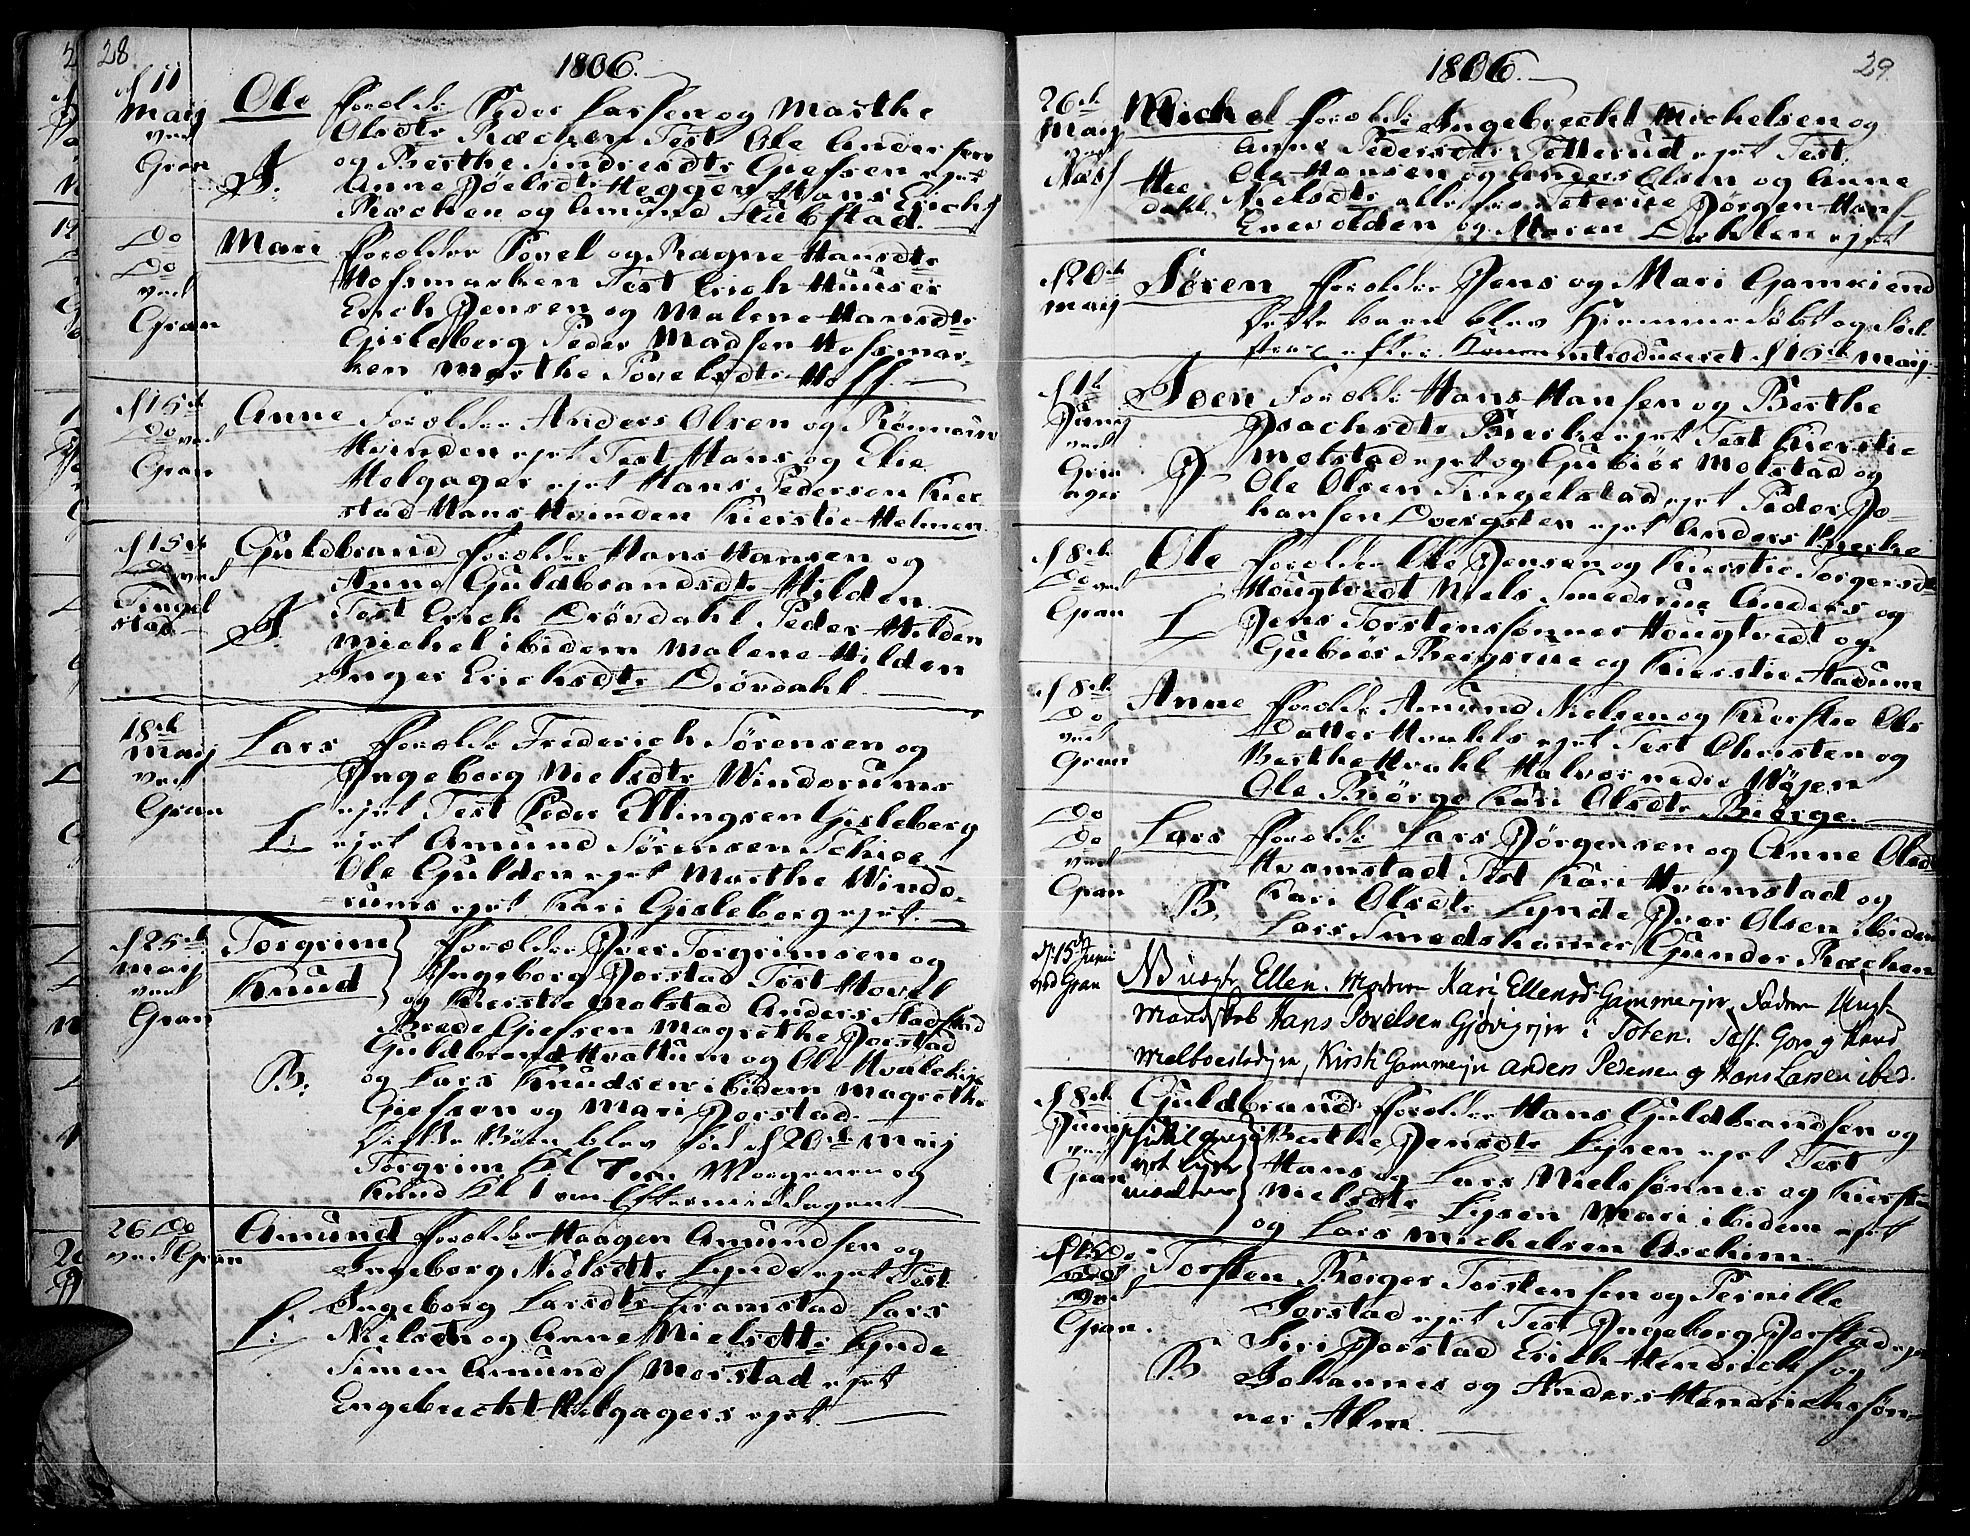 28
1806.
d 11
Maij
ved
Gran
Ole Foreldr: Peder Larsen og Marthe
Olsdtr Ræchen Test Ole Andersen
og Berthe Sindresdtr Giefsen ejet
Anne Joelsdtr Heggen Hans Erichs
Ræchen og Amund Stubstad.
Do
Do
ved
Gran
Mari Forelder Povel og Ragne Hansdtr
Hofsmarken Test Erich Huuser
Erich Jensen og Malene Hansdtr
Gisleberg Peder Madsen Hofsmar-
ken Marthe Povelsdtr Hoff.
d 15de
Do ved
Gran
Anne Forelder Anders Olsen og Rønnaug
Hvinden ejet Test Hans og Elie
Helgager ejet Hans Pedersen Kier
stad Hans Hvinden Kierstie Helmen
d 15de
Do ved
Tingel
stad
Guldbrand Forelder Hans Hansen og
Anne Guldbrandsdtr Hilden
Test Erich Drøvdahl Peder Hilden
Michel ibidem Malene Hilden
Inger Erichsdtr Drøvdahl
18de
Maij
ved
Gran
Lars Foreldr Frederich Sørensen og
Ingeborg Nielsdtr Windorums
ejet Test Peder Ellingsen Gisleberg
L: ejet Amund Sørensen Schiee
Ole Gulden ejet Marthe Windo-
rums ejet Kari Gisleberg ejet.
d 25de
Maij
ved
Gran
Torgrim
Knud
Forelder Iver Torgrimsen og
Ingeborg Jorstad Test Hovel
og Kierstie Molstad Anders Stadstad
Brede Giefsen Magrethe Jorstad
Guldbrand Hvattum og Ole Hvaleby
B: og Lars Knudsen ibidem Magrethe
Giefsen og Mari Jorstad
Disse Børn blev fød d 20de Maij
Torgrim Kl 7 om Morgenen og
Knud Kl 1 om Eftermiddagen
26 Do
ved Gran
Amund Forelder Haagen Amundsen og
Ingeborg Nielsdtr Lynde ejet Test
L: Ingeborg Larsdtr Framstad Lars
Nielsen og Anne Nielsdtr Lynde
Simen Amunds Morstad ejet
Engebrecht Helgagers ejet.
29.
1806.
26de
Maij
ved
Næss
Michel Foreldr: Ingebrecht Michelsen og
Anne Pedersdtr Tetterud ejet Test
Ole Hansen og Anders Olsen og Anne
Nielsdtr alle fra Jørgen Han
Enevolden og Maren Dahlen ejet
d 20de
Maij
Søren Forelder Jens og Mari Gamkiend
Dette barn blev Hiemmedøbt og død
strax efter Konen introduceret d 15de Maij
d 1te
Junij
ved
Grin
ager
Joen Foreldr: Hans Hansen og Berthe
Isachsdtr Brerke ejet Test Kierstie
J Molstad ejet og Gubiør Molstad og
Ole Olsen Tingelstad ejet Peder Jo-
hansen Dvergsten ejet Anders Brerke
d 8de
Do ved
Gran
Ole Forelder Ole Jensen og Kierstie Torgersdtr
Hougtvedt Niels Smedsrue Anders og
L Jens Torstensønner Hougtvedt og
Gubiør Bergsrue og Kierstie Stadum
d 8de
Do
ved
Gran
Anne Foreldr: Amund Nielsen og Kierstie Ols
Datter Hvahls ejet Test Christen og
Berthe Hvahl Halvor nedre Wøjen
Ole Biørge Kari Olsdtr Biørge.
Do
Do
ved
Gran
Lars Foreldr: Lars Jørgensen og Anne Olsd
Hvamstad Test Kari Hvamstad og
B. Kari Olsdtr Lynde Iver Olsen ibidem
Lars Smedshamer Gunder Ræchen
d: 15de Junii
ved Gran
NB uægte Ellen. Modren Kari Ellensd Gammerejer, Fadren Ungt
mandskab Hans Povelsen Gjøvigejer i Toten. Test. Gore og Knud
Melboestadejer, Kirsti Gammeejer Anders Pedersen og Hans Larsen ibid.
d 8de
Junij
ved
Gran
Guldbrand Forelder Hans Guldbrandsen og
Berthe Jensdtr Lysen ejet Test
Hans og Lars Nielssønner og Kierstie
Nielsdtr Lysen Mari ibidem ejet
og Lars Michelsen Aschim
d 15 Do
ved
Gran.
Torsten Borger Torstensen og Pernille
Jorstad ejet Test Ingeborg Jorstad ejet
Siri Jorstad Erich Hendrichs og
B Johannes og Anders Hendrichssøn-
ner Alm.